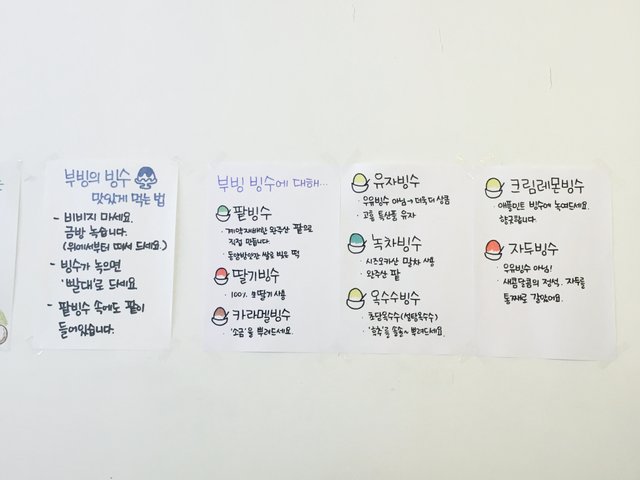 부빙의 빙수
맛있게 먹는 법
- 비비지 마세요.
금방 녹습니다.
(위에서부터 떠서 드세요.)
- 빙수가 녹으면
'빨대'로 드세요
- 팥빙수 속에도 팥이
들어있습니다.
부빙 빙수에 대해...
팥빙수
· 계약재배한 완주산 팥으로
직접 만듭니다.
· 동네방앗간 쌀로 빚은 떡
딸기빙수
· 100% 생딸기 사용
카라멜빙수
· '소금'을 뿌려드세요.
유자빙수
· 우유빙수 아님→
· 고흥 특산품 유자
녹차빙수
· 시즈오카산 말차 사용
· 완주산 팥
옥수수빙수
· 초당옥수수(설탕옥수수)
· '후추'를 솔솔~ 뿌려드세요.
크림레몬빙수
· 애플민트 빙수에 녹여드세요.
향긋합니다.
자두빙수
· 우유빙수 아님!
· 새콤달콤의 정석. 자두를
통째로 갈았어요.